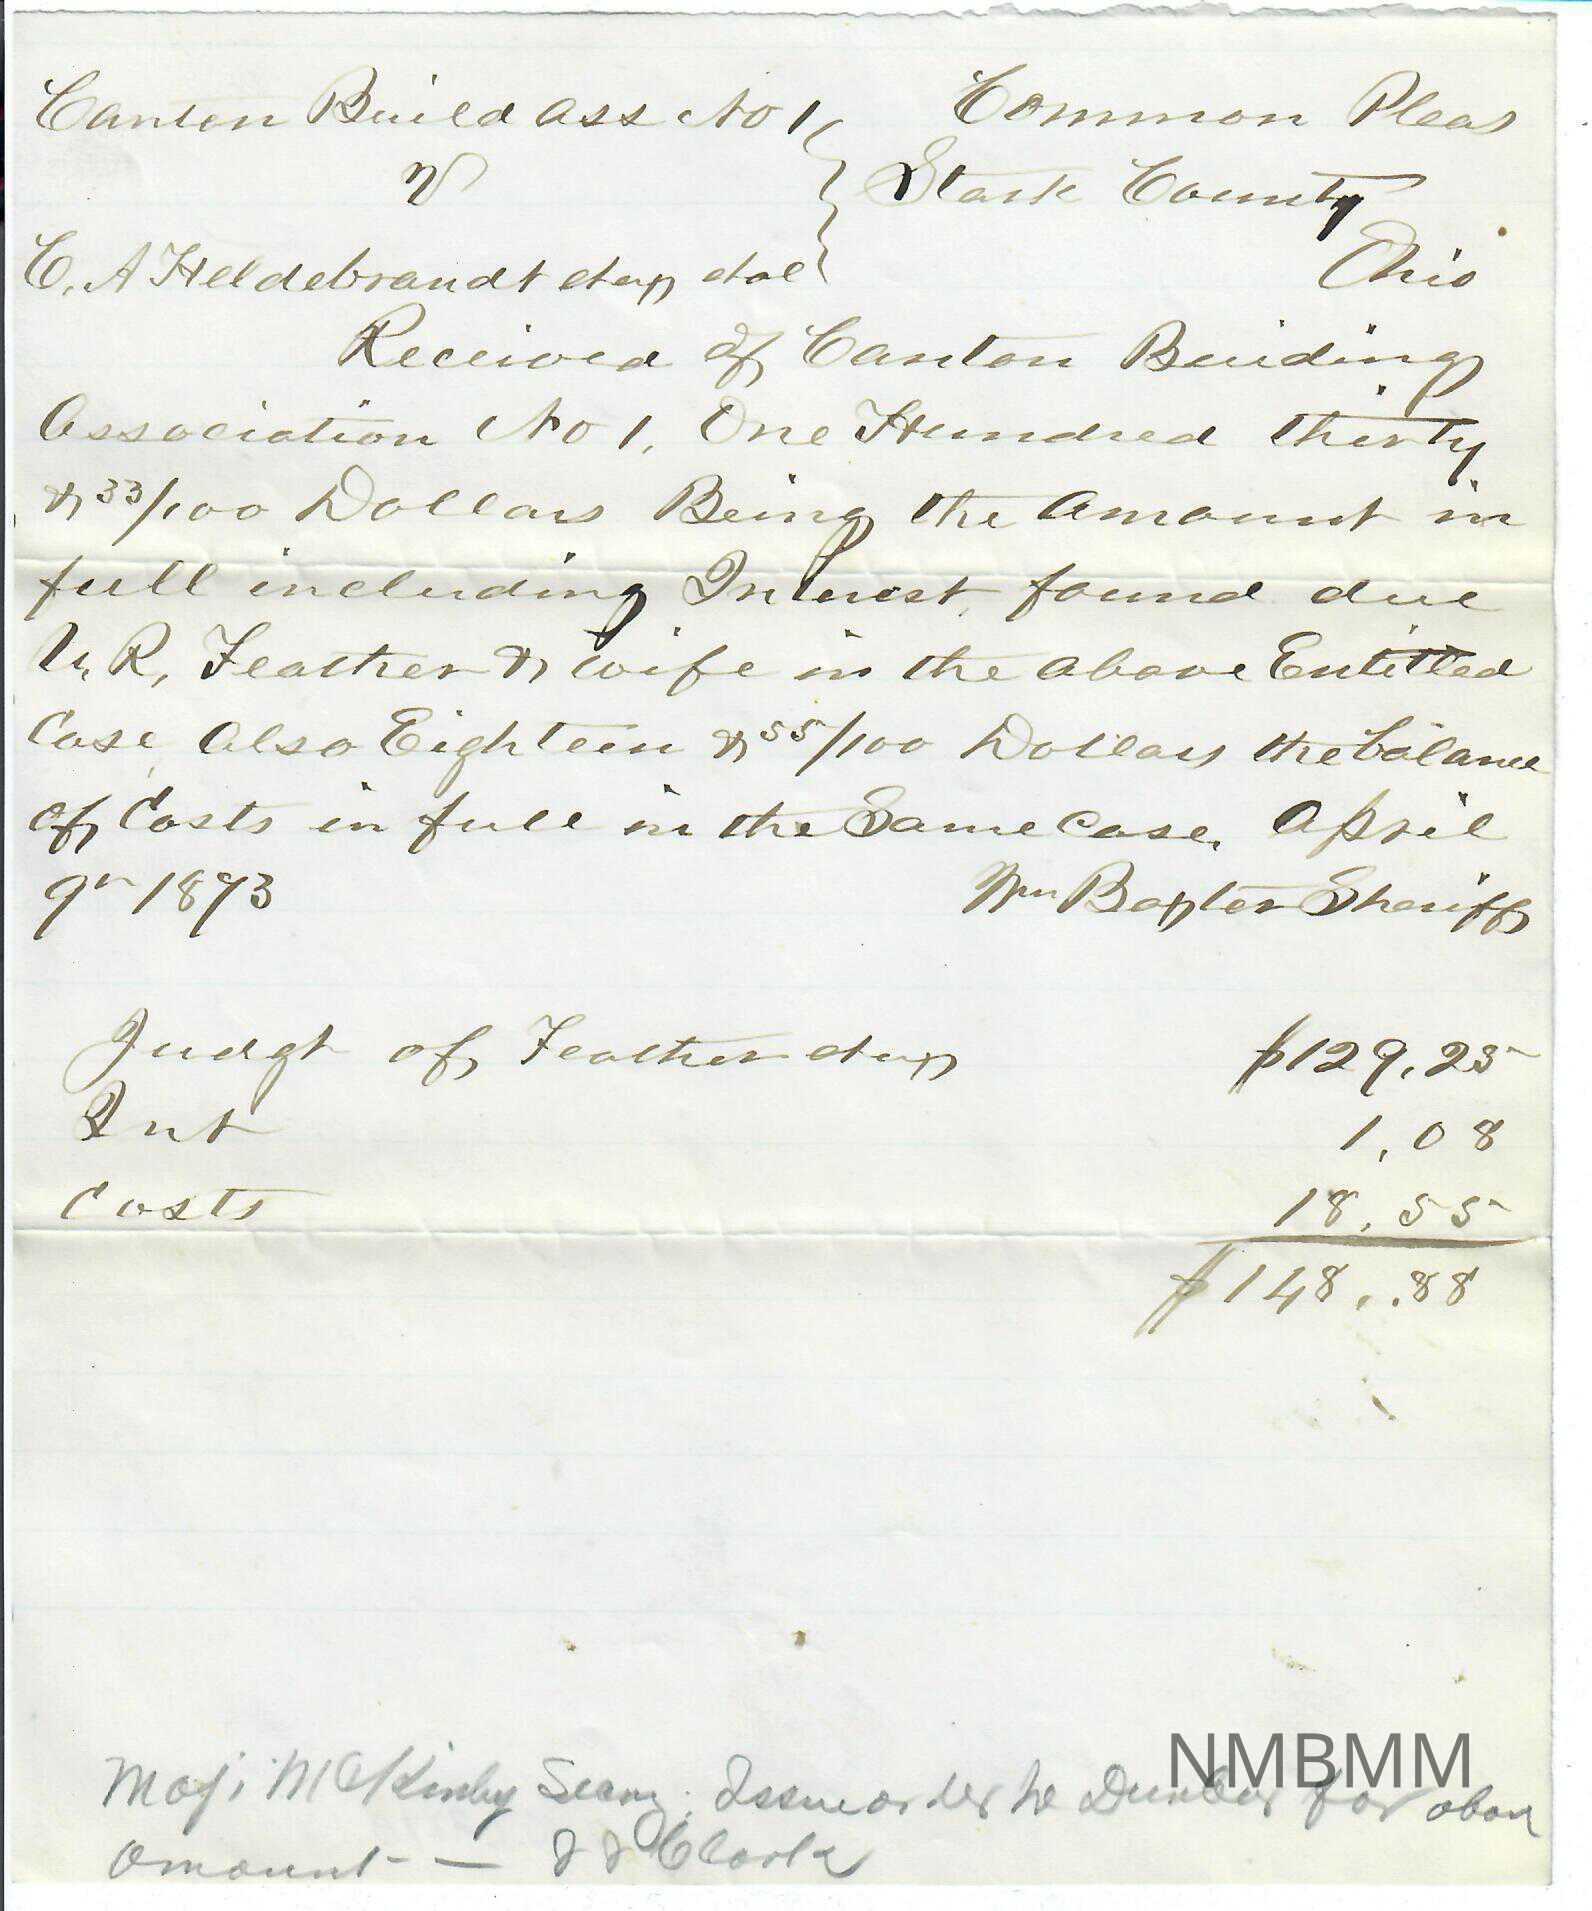 Canton Build Ass No 1 Common Pleas
v Stark County
C. A Heldebrandt et al Ohio
Received of Canton Building
Association No 1, One Hundred thirty
& 33/100 Dollars Being the Amount in
full including Interest found due
U. R, Feather & wife in the above Entitled
Case, Also Eighteen & 55/100 Dollars the balance
of Costs in full in the Same Case, April
9th 1873 Wm Baxter Sheriff
Judgt of Feather $129,25
Int 1,08
Costs 18,55
$148,.88
Maj. McKinley Issue order to Dunbar for above
amount — J J Clark
NMBMM